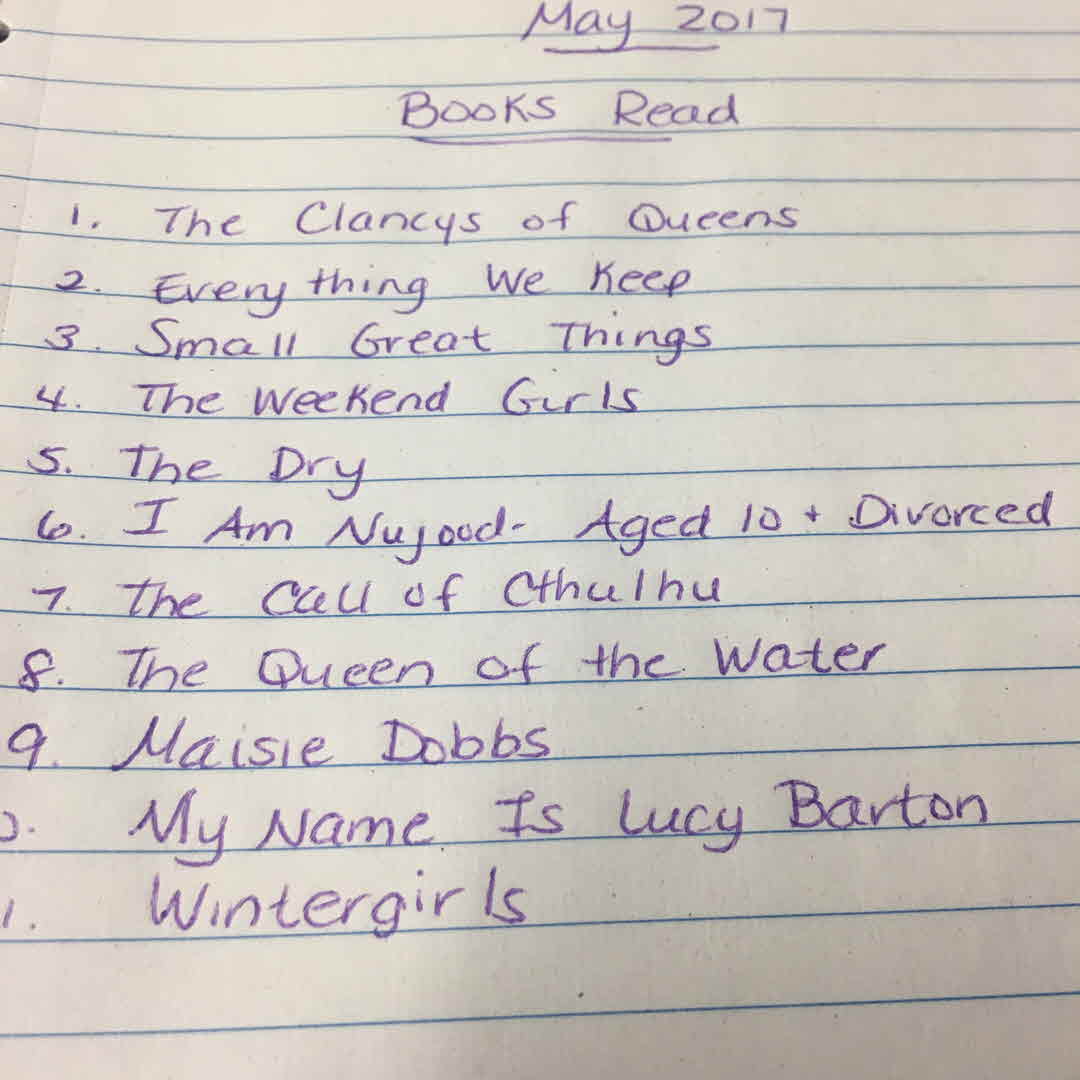 May 2017
Books Read
1. The Clancys of Queens
2. Everything We Keep
3. Small Great Things
4. The Weekend Girls
5. The Dry
6. I Am Nujood- Aged 10 + Divorced
7. The Call of Cthulhu
8. The Queen of the Water
9. Maisie Dobbs
0. My Name Is Lucy Barton
1. Wintergirls